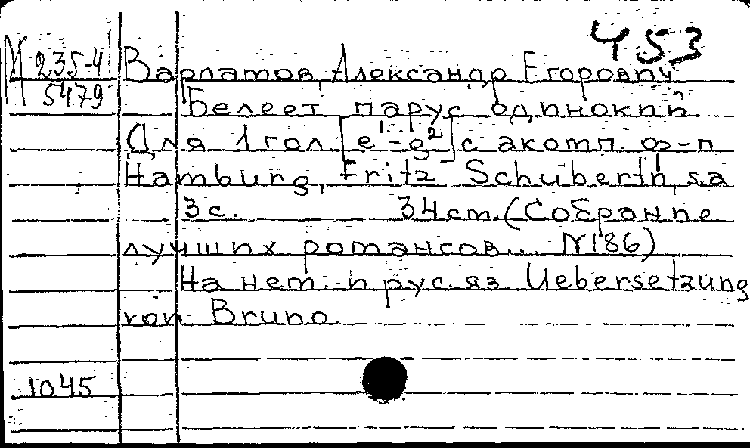 453
М 235-4
5479
Варламов, Александр Егорович
Белеет парус одинокий
Для 1 гол. [e¹-g²] с акомп. ф-п
Hamburg, Fritz Schuberth, s.a
3 с. 34 cm. (Собрание
лучших романсов... N 186)
На нем. и рус. яз Uebersetzung
von Bruno
1045